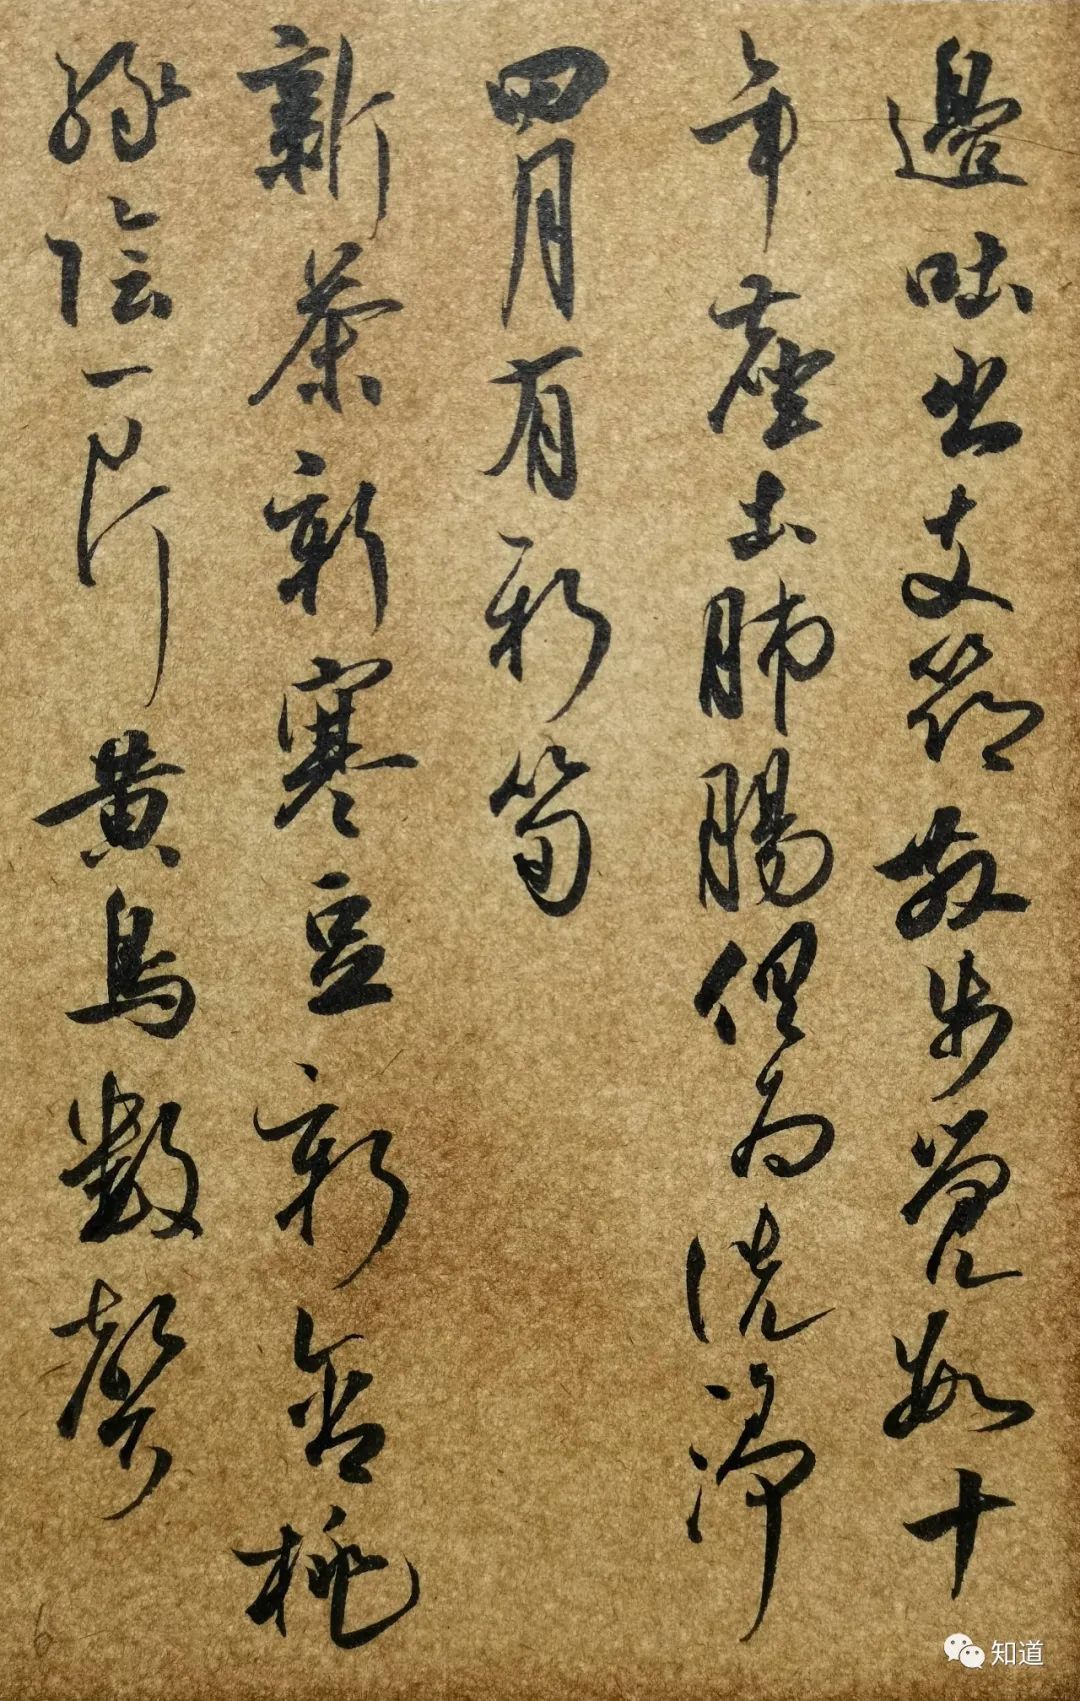 邊咄出支筇散步覺數十
年塵土肺腸俱為洗淨
四月有新筍
新茶新寒豆新含桃
綠陰一片黄鳥數聲
知道